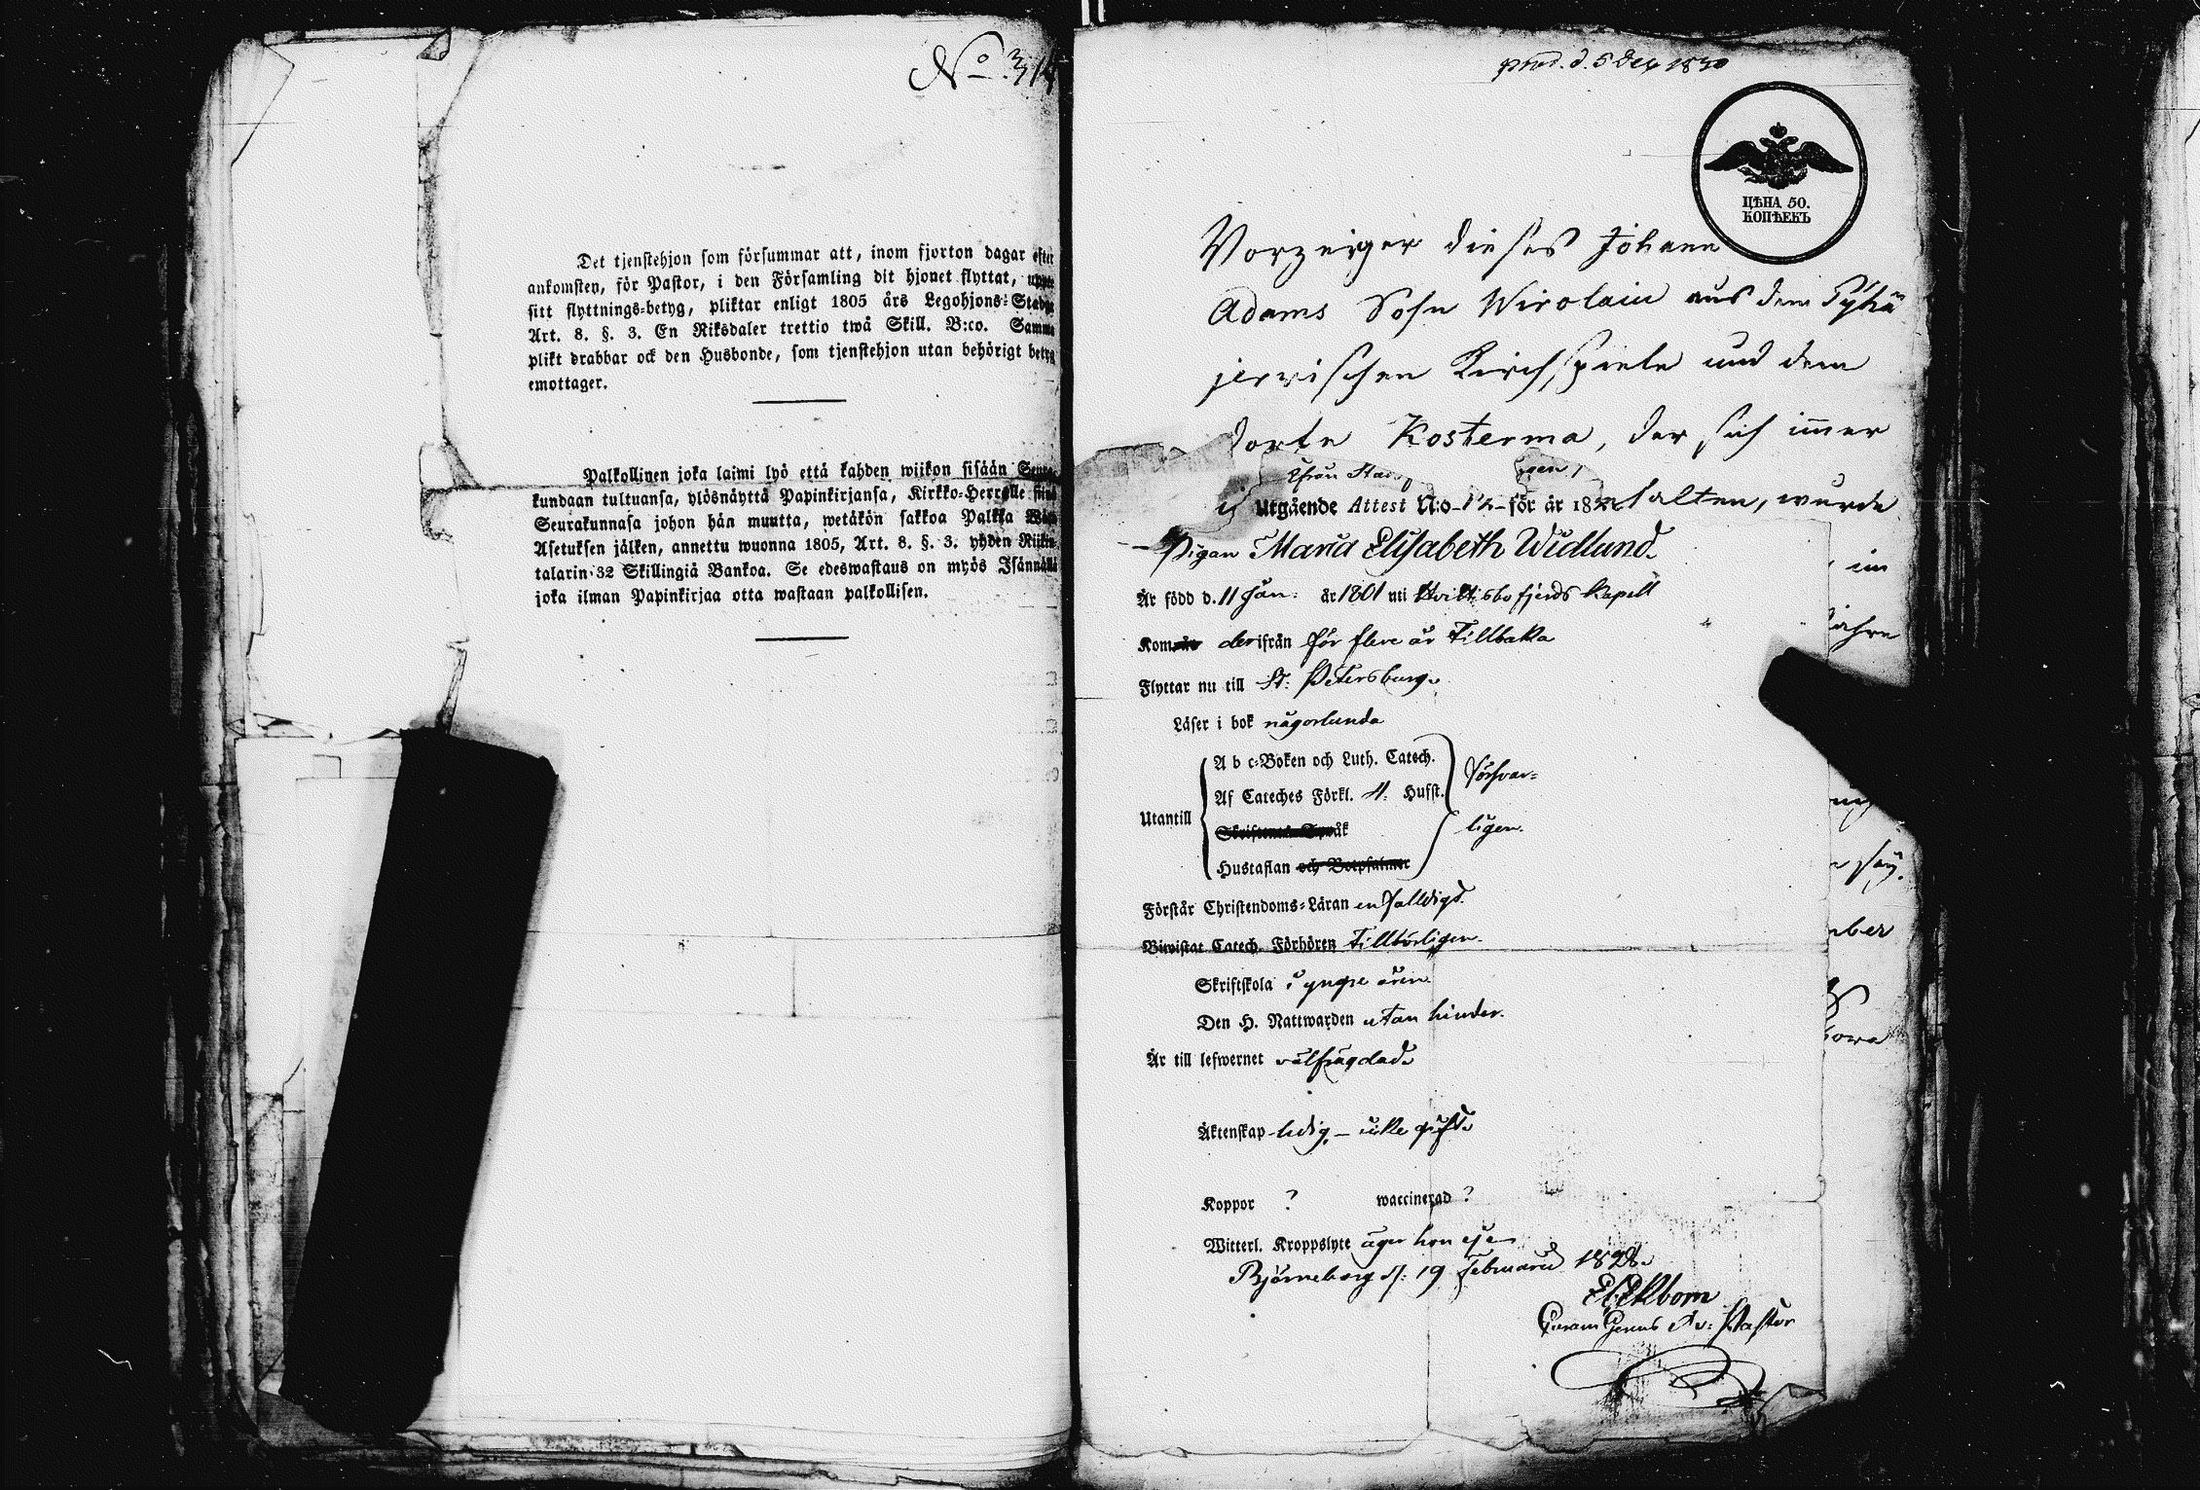 No 314
Det tjenstehjon som försummar att, inom fjorton dagar efter
ankomsten, för Pastor, i den Församling dit hjonet flyttat,
sitt flyttnings-betyg, pliktar enligt 1805 års Legohjons-Stadga
Art. 8. §. 3. En Riksdaler trettio twå Skill. B:co. Samma
plikt drabbar ock den Husbonde, som tjenstehjon utan behörigt betyg
emottager.
Palkollinen joka laimi lyö että kahden wiikon sisään Seura-
kundaan tultuansa, ylösnäyttä Papinkirjansa, Kirkko-Herralle siinä
Seurakunnasa johon hän muutta, wetäkön sakkoa Palkka
Asetuksen jälken, annettu wuonna 1805, Art. 8. §. 3. yhden Riikin-
talarin 32 Skillingiä Bankoa. Se edeswastaus on myös Isännällä
joka ilman Papinkirjaa otta wastaan palkollisen.
prod. d. 5 Dec 1830
ЦѢНА 50.
КОПѢЕКЪ
Vorzeiger dieses Johann
Adams Sohn Wirolain aus dem Pyhä
jerwischen Kirchspiele und dem
Dorfe Kosterma, der sich immer
Utgående Attest N:o 12 för år 182 halten, wurde
Pigan Maria Elisabeth Widlund.
Är född d. 11 Jan: år 1801 uti Hvittisbofjerds Kapell
im
Kom derifrån för flere år tillbaka
Jahre
Flyttar nu till St: Petersburg.
Läser i bok någorlunda
Utantill
A b c-Boken och Luth. Catech.
Af Cateches Förkl. Hufst.
försvar-
Språk
ligen.
Hustaflan och Botpsalmer
Förstår Christendoms-Läran enfalldigt.
Biwistat Catech. Förhören tillbörligen.
ber
Skriftskola i yngre åren
Den H. Nattwarden utan hinder.
Är till lefwernet välfrägdad.
Äktenskap ledig, – icke gift.
Koppor ? waccinerad ?
Witterl. Kroppslyte äger hon eje
Björneborg d: 19 Februarii 1828.
Ekbom
Pastor